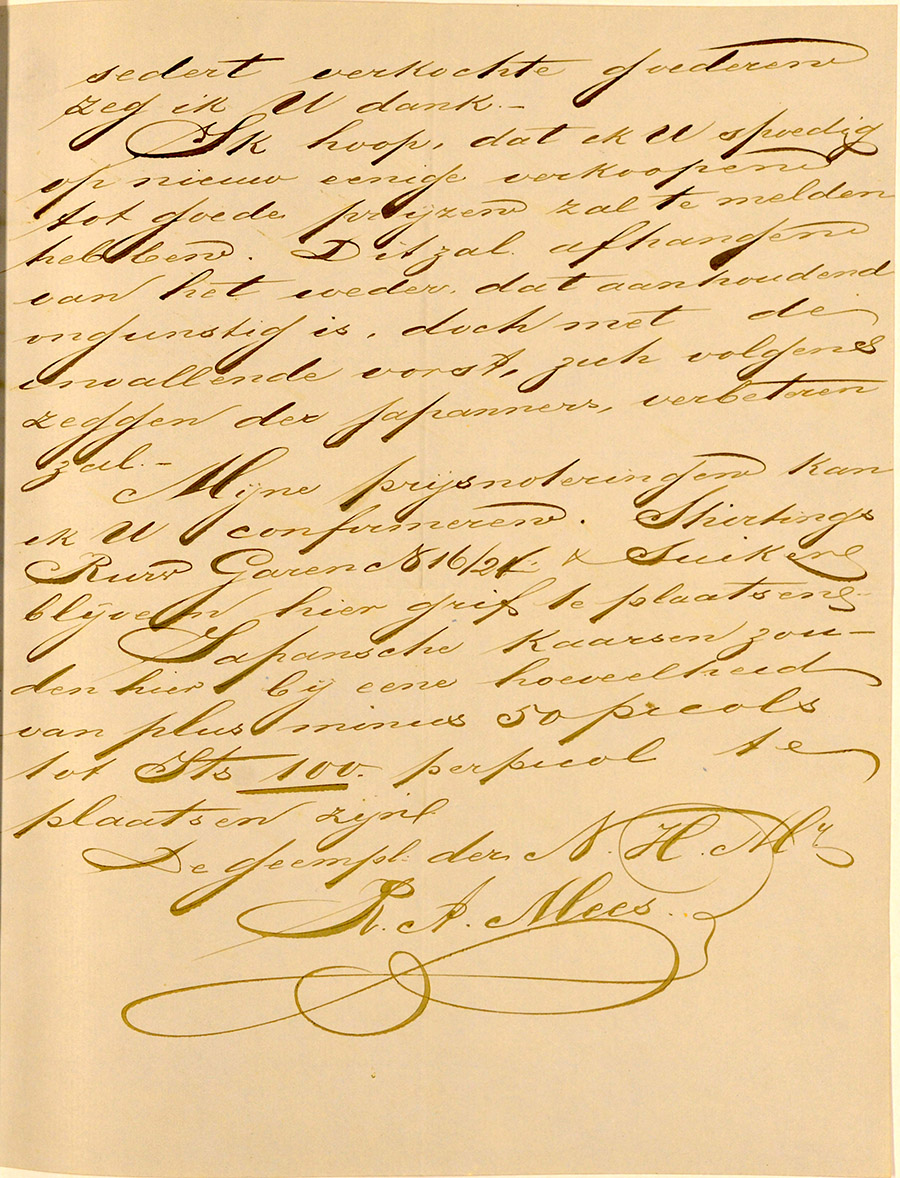 sedert verkochte goederen
zeg ik U dank.—
Ik hoop, dat ik U spoedig
op nieuw eenige verkoopen
tot goede prijzen zal te melden
hebben. Dit zal afhangen
van het weder, dat aanhoudend
ongunstig is, doch met de
invallende vorst, zich volgens
zeggen der Japanners, verbeteren
zal.—
Mijne prijsnoteringen kan
ik U confirmeren. Shirtings
Ruw Garen No 16/24 & Suiker
blijven hier grif te plaatsen.—
Japansche Kaarsen zou-
den hier bij eene hoeveelheid
van plus minus 50 picols
tot Sts 100. per picol te
plaatsen zijn
De geempl: der N. H. Mij
R. A. Mees.